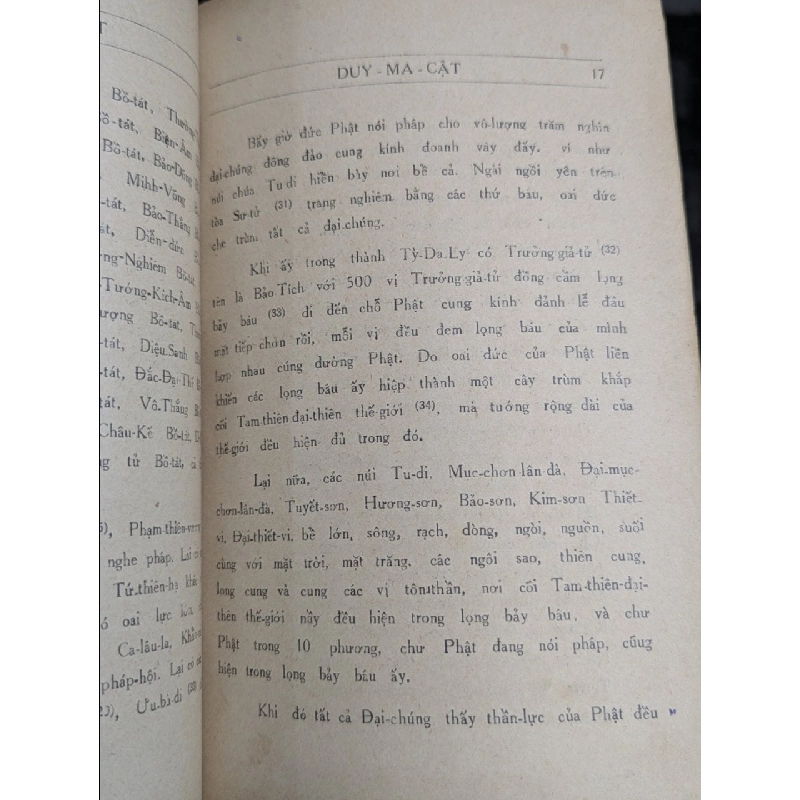 T
Bồ-tát, Thường
Bồ-tát, Biện-Âm
Bồ-tát, Bảo-Dõng
Minh-Võng
tát, Bảo-Thắng
tát, Diễn-đức
ng-Nghiêm Bồ-tát
-Tướng-Kích-Âm
ượng Bồ-tát,
tát, Diệu.Sanh
tát, Đắc-Đại-Thế
tát, Vô.Thắng
Châu-Kế Bồ-tát,
ng tử Bồ-tát, cả
Phạm-thiên-vương
nghe pháp. Lại có
Tứ.thiên-hạ khác
ó oai lực
Ca-lâu-la,
pháp-hội. Lại có
23), Ưu.bà-di
DUY-MA-CẬT 17
Bấy giờ đức Phật nói pháp cho vô-lượng trăm nghìn
đại-chúng đông đảo cung kính doanh vây đấy. ví như
núi chúa Tu-di hiền bày nơi bể cả. Ngài ngồi yên trên
tòa Sư-tử (31) trang nghiêm bằng các thứ báu, oai đức
che trùm tất cả đại.chúng.
Khi ấy trong thành Tỳ-Da.Ly có Trưởng.giả-tử (32)
tên là Bảo.Tích với 500 vị Trưởng-giả-tử đồng cầm lọng
bảy báu (33) đi đến chỗ Phật cung kính đảnh lễ đầu
mặt tiếp chơn rồi, mỗi vị đều đem lọng báu của mình
hợp nhau cúng dường Phật. Do oai đức của Phật liền
khiến các lọng báu ấy hiệp thành một cây trùm khắp
cõi Tam-thiên-đại-thiên thế-giới (34), mà tướng rộng dài của
thế-giới đều hiện đủ trong đó.
Lại nữa, các núi Tu-di, Muc-chơn-lân-đà, Đại-mục-
chơn-lân-đà, Tuyết-sơn, Hương-sơn, Bảo-sơn, Kim-sơn Thiết-
vi, Đại-thiết-vi, bề lớn, sông, rạch, dòng, ngòi, nguồn, suối
cùng với mặt trời, mặt trăng, các ngôi sao, thiên cung,
long cung và cung các vị tôn.thần, nơi cõi Tam-thiên-đại-
thên thế-giới nầy đều hiện trong lọng bảy báu, và chư
Phật trong 10 phương, chư Phật đang nói pháp, cũng
hiện trong lọng bảy báu ấy.
Khi đó tất cả Đại-chúng thấy thần-lực của Phật đều